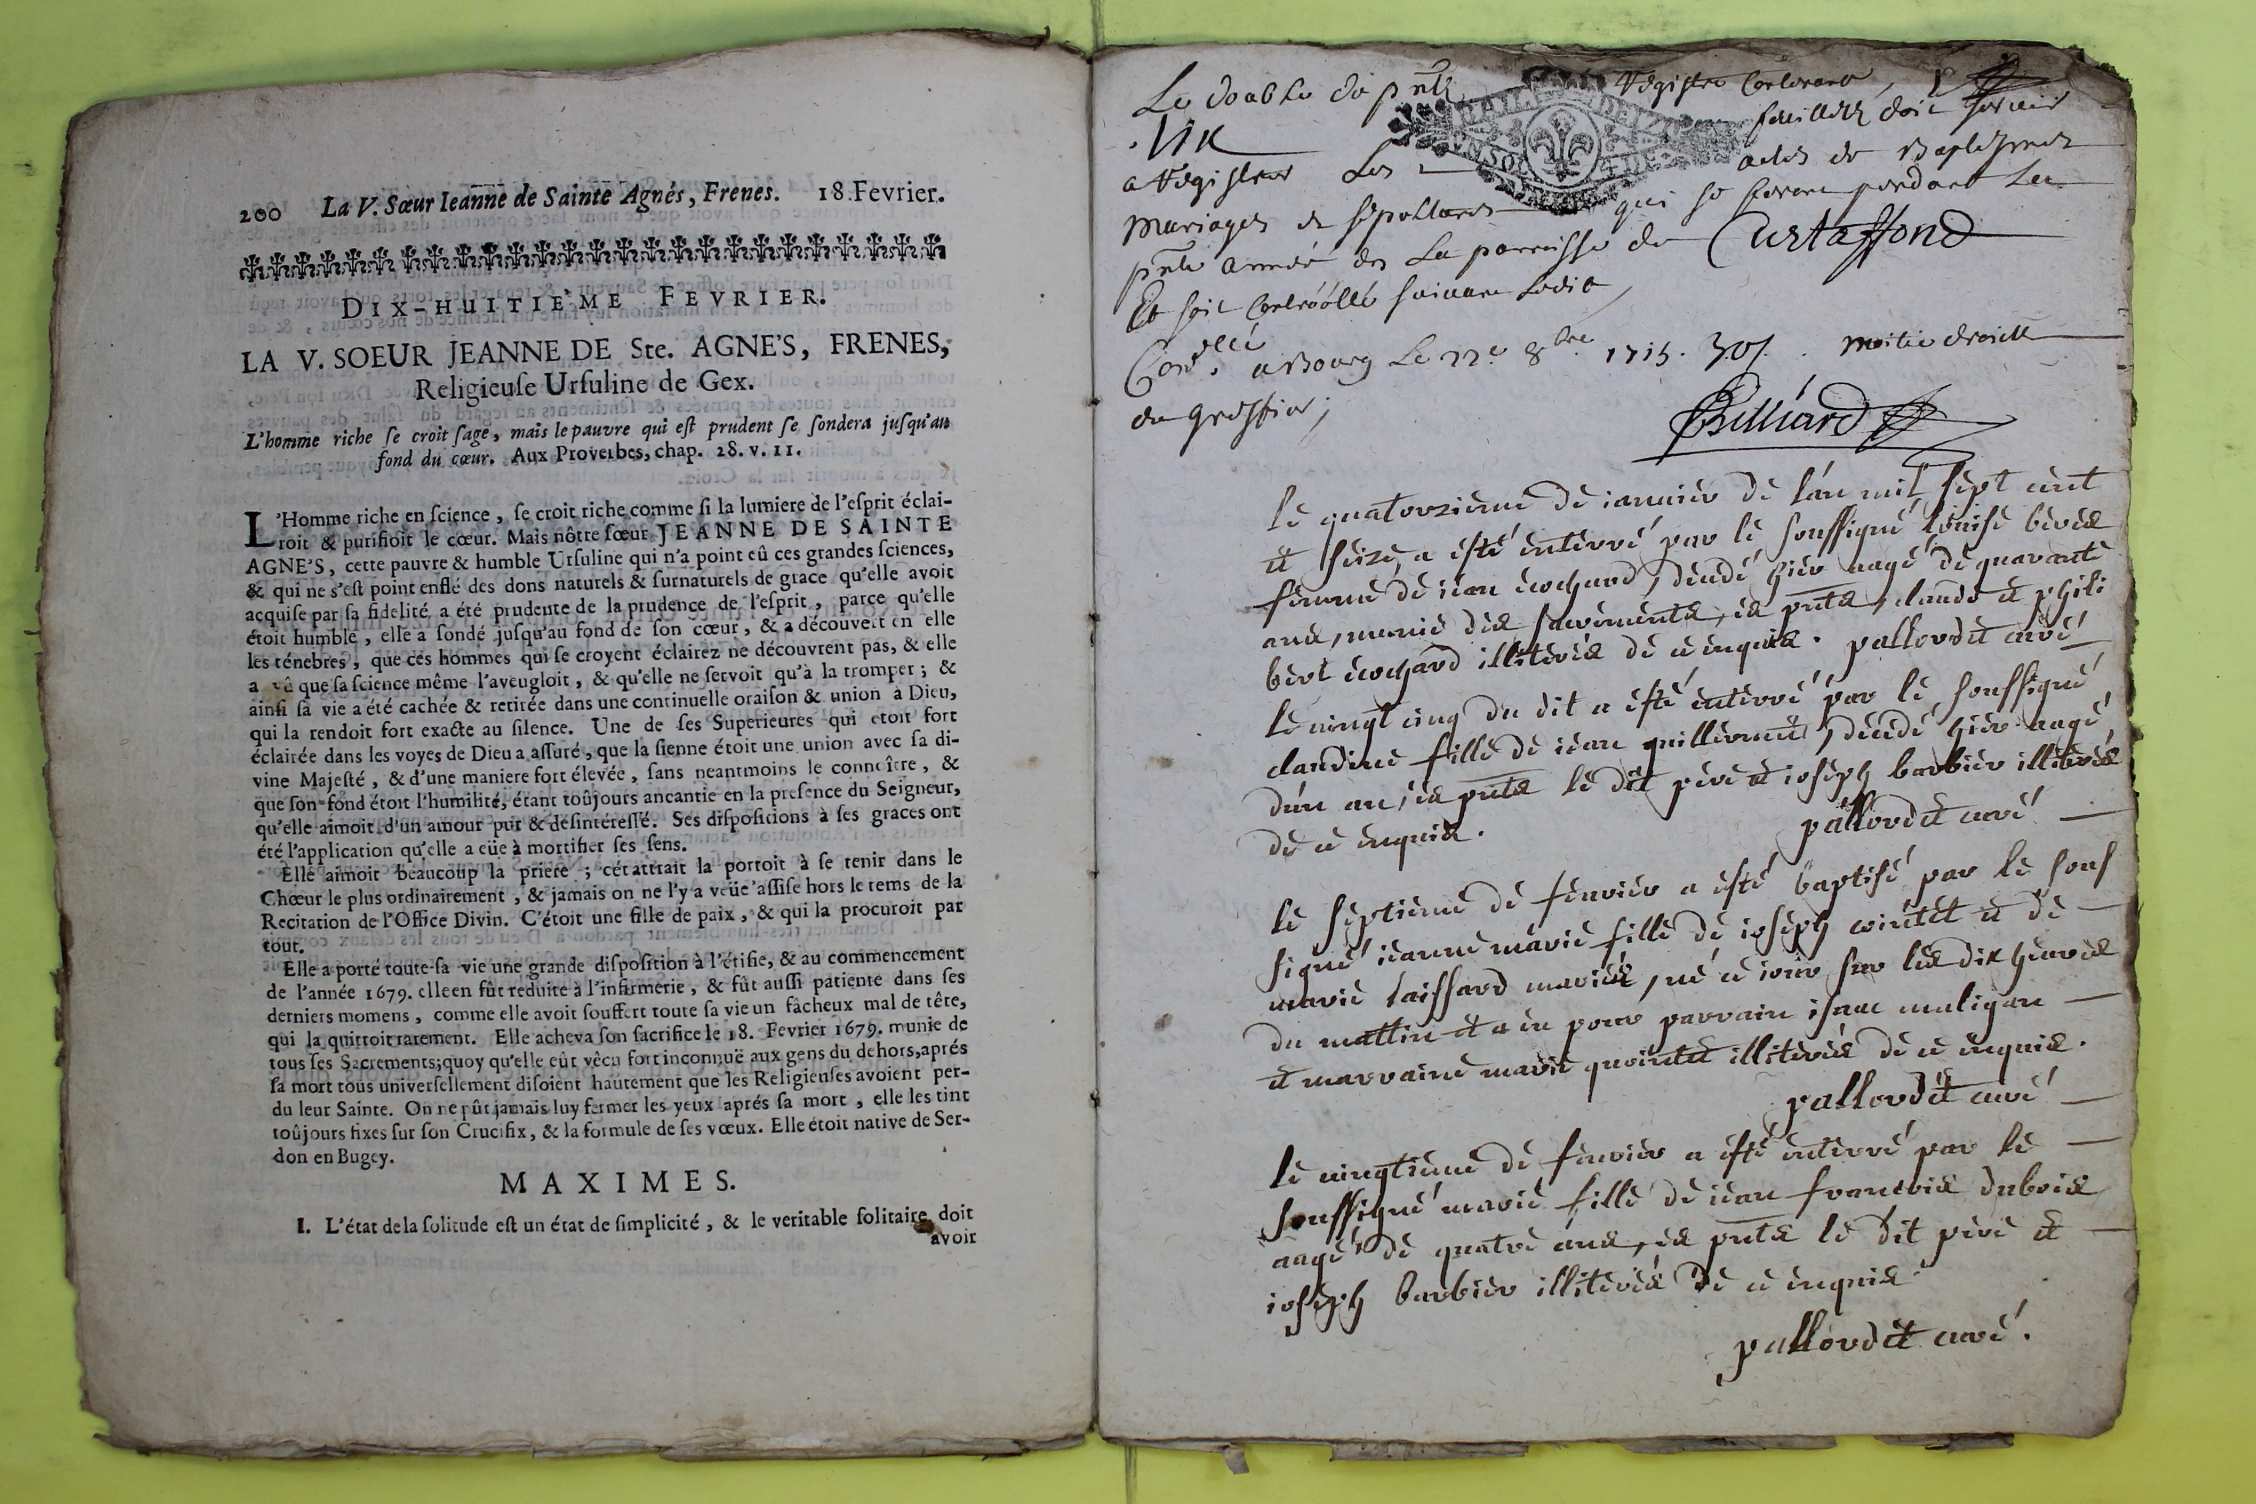 200 La V. Sœur Ieanne de Sainte Agnés, Frenes. 18 Fevrier.
DIX-HUITIE'ME FEVRIER.
LA V. SOEUR JEANNE DE Ste. AGNE'S, FRENES,
Religieuſe Urſuline de Gex.
L'homme riche ſe croit ſage, mais le pauvre qui eſt prudent ſe ſondera juſqu'au
fond du cœur. Aux Proverbes, chap. 28. v. 11.
L'Homme riche en ſcience, ſe croit riche comme ſi la lumiere de l'eſprit éclai-
roit & purifioit le cœur. Mais nôtre ſœur JEANNE DE SAINTE
AGNE'S, cette pauvre & humble Urſuline qui n'a point eû ces grandes ſciences,
& qui ne s'eſt point enflé des dons naturels & ſurnaturels de grace qu'elle avoit
acquiſe par ſa fidelité a été prudente de la prudence de l'eſprit, parce qu'elle
étoit humble, elle a ſondé juſqu'au fond de ſon cœur, & a découvert en elle
les ténebres, que ces hommes qui ſe croyent éclairez ne découvrent pas, & elle
a vû que ſa ſcience même l'aveugloit, & qu'elle ne ſervoit qu'à la tromper; &
ainſi ſa vie a été cachée & retirée dans une continuelle oraiſon & union à Dieu,
qui la rendoit fort exacte au ſilence. Une de ſes Superieures qui étoit fort
éclairée dans les voyes de Dieu a aſſuré, que la ſienne étoit une union avec ſa di-
vine Majeſté, & d'une maniere fort élevée, ſans neantmoins le connoître, &
que ſon fond étoit l'humilité, étant toûjours aneantie en la preſence du Seigneur,
qu'elle aimoit d'un amour pur & déſintéreſſé. Ses diſpoſitions à ſes graces ont
été l'application qu'elle a eüe à mortifier ſes ſens.
Elle aimoit beaucoup la priere; cét attrait la portoit à ſe tenir dans le
Chœur le plus ordinairement, & jamais on ne l'y a veüe aſſiſe hors le tems de la
Recitation de l'Office Divin. C'étoit une fille de paix, & qui la procuroit par
tout.
Elle a porté toute ſa vie une grande diſpoſition à l'étiſie, & au commencement
de l'année 1679. elle en fût reduite à l'infirmerie, & fût auſſi patiente dans ſes
derniers momens, comme elle avoit ſouffert toute ſa vie un fâcheux mal de tête,
qui la quittoit rarement. Elle acheva ſon ſacrifice le 18. Fevrier 1679. munie de
tous ſes Sacrements; quoy qu'elle eût vêcu fort inconnuë aux gens du dehors, aprés
ſa mort tous univerſellement diſoient hautement que les Religieuſes avoient per-
du leur Sainte. On ne pût jamais luy fermer les yeux aprés ſa mort, elle les tint
toûjours fixes ſur ſon Crucifix, & la formule de ſes vœux. Elle étoit native de Ser-
don en Bugey.
MAXIMES.
I. L'état de la ſolitude eſt un état de ſimplicité, & le veritable ſolitaire doit
avoir
Le double du pnt Registre Contenant
feuilletz doit servir
a Registrer Les actes de Baptesmes
Mariages et sepultures qui se feront pendant La
pnte année de La parroisse de Curtaffond
Et soit Controollé suivant Ledit
a Bourg Le 22e 8bre 1715. moitie droicts
du Greffier;
Billiard
le quatorzieme de ianvier de l'an mil sept cent
et seize, a esté enterré par le soussigné louise
femme de iean cochard, decedé hier aagé de quarante
ans, munie des sacrements, es pnts, claude et phili
bert cochard illiterés de ce enquis. pallordet curé
le vingt cinq du dit a esté enterré par le soussigné
claudine fille de iean guillermet, decedé hier aagé
d'un an, es pnts le dit pere et ioseph barbier illiterés
de ce enquis. pallordet curé
le septieme de fevrier a esté baptisé par le sous
signé ieanne marie fille de ioseph cointet et de
marie taissard mariés, né ce iour sur les dix heures
du mattin et a eu pour parrain isaac muligan
et marraine marie quointet illiterés de ce enquis.
pallordet curé
le vingtieme de fevrier a esté enterré par le
soussigné marie fille de iean francois dubois
aagé de quatre ans, es pnts le dit pere et
ioseph barbier illiterés de ce enquis
pallordet curé.